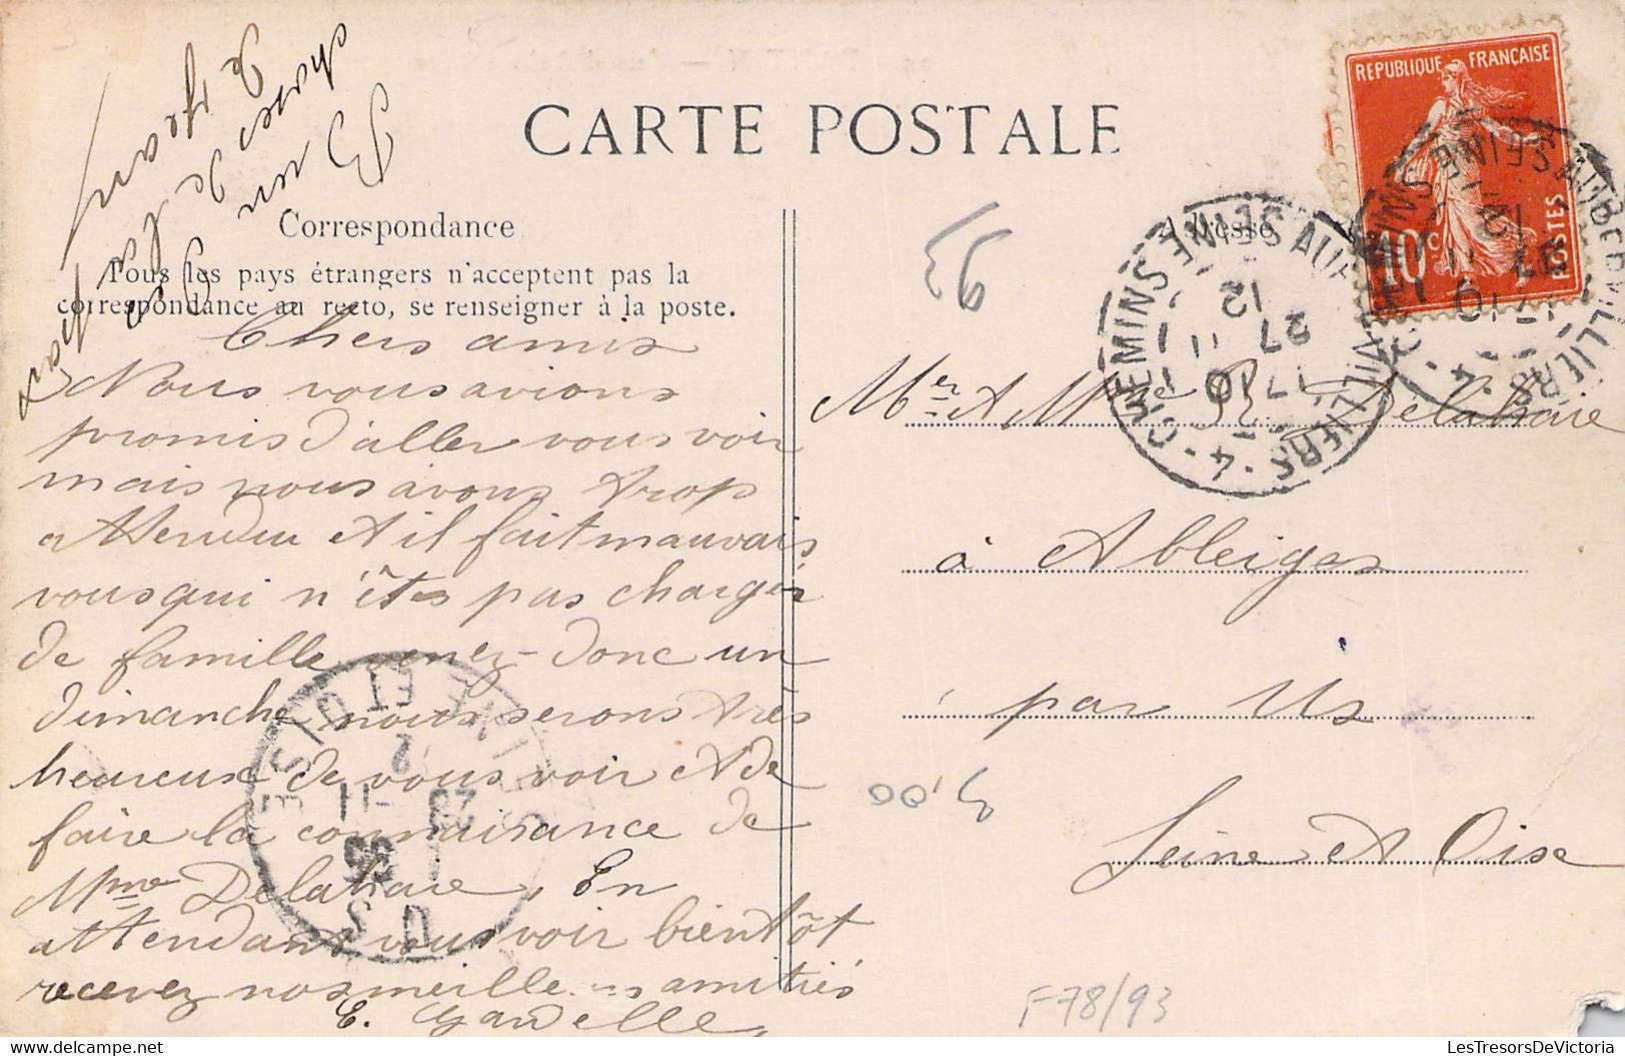 CARTE POSTALE
Correspondance
Tous les pays étrangers n'acceptent pas la
correspondance au recto, se renseigner à la poste.
Chers amis
Nous vous avions
promis d'aller vous voir
mais nous avons trop
attendu et il fait mauvais
vous qui n'êtes pas chargés
de famille venez-donc un
dimanche nous serons très
heureux de vous voir et de
faire la connaisance de
Mme Delahaie, En
attendant vous voir bientôt
recevez nos meilleures amitiés
E. Gandelle
Adresse
Mer et Mme R. Delahaie
à Ableiges
par Us
Seine et Oise
REPUBLIQUE FRANÇAISE
10c
POSTES
4 CHEMINS SEINE AUBERVILLIERS
17 10
27 11
12
4 CHEMINS SEINE AUBERVILLIERS
17 10
27 11
12
US
SEINE ET OISE
28 -11
93
3,00
F78/93
de
LesTresorsDeVictoria